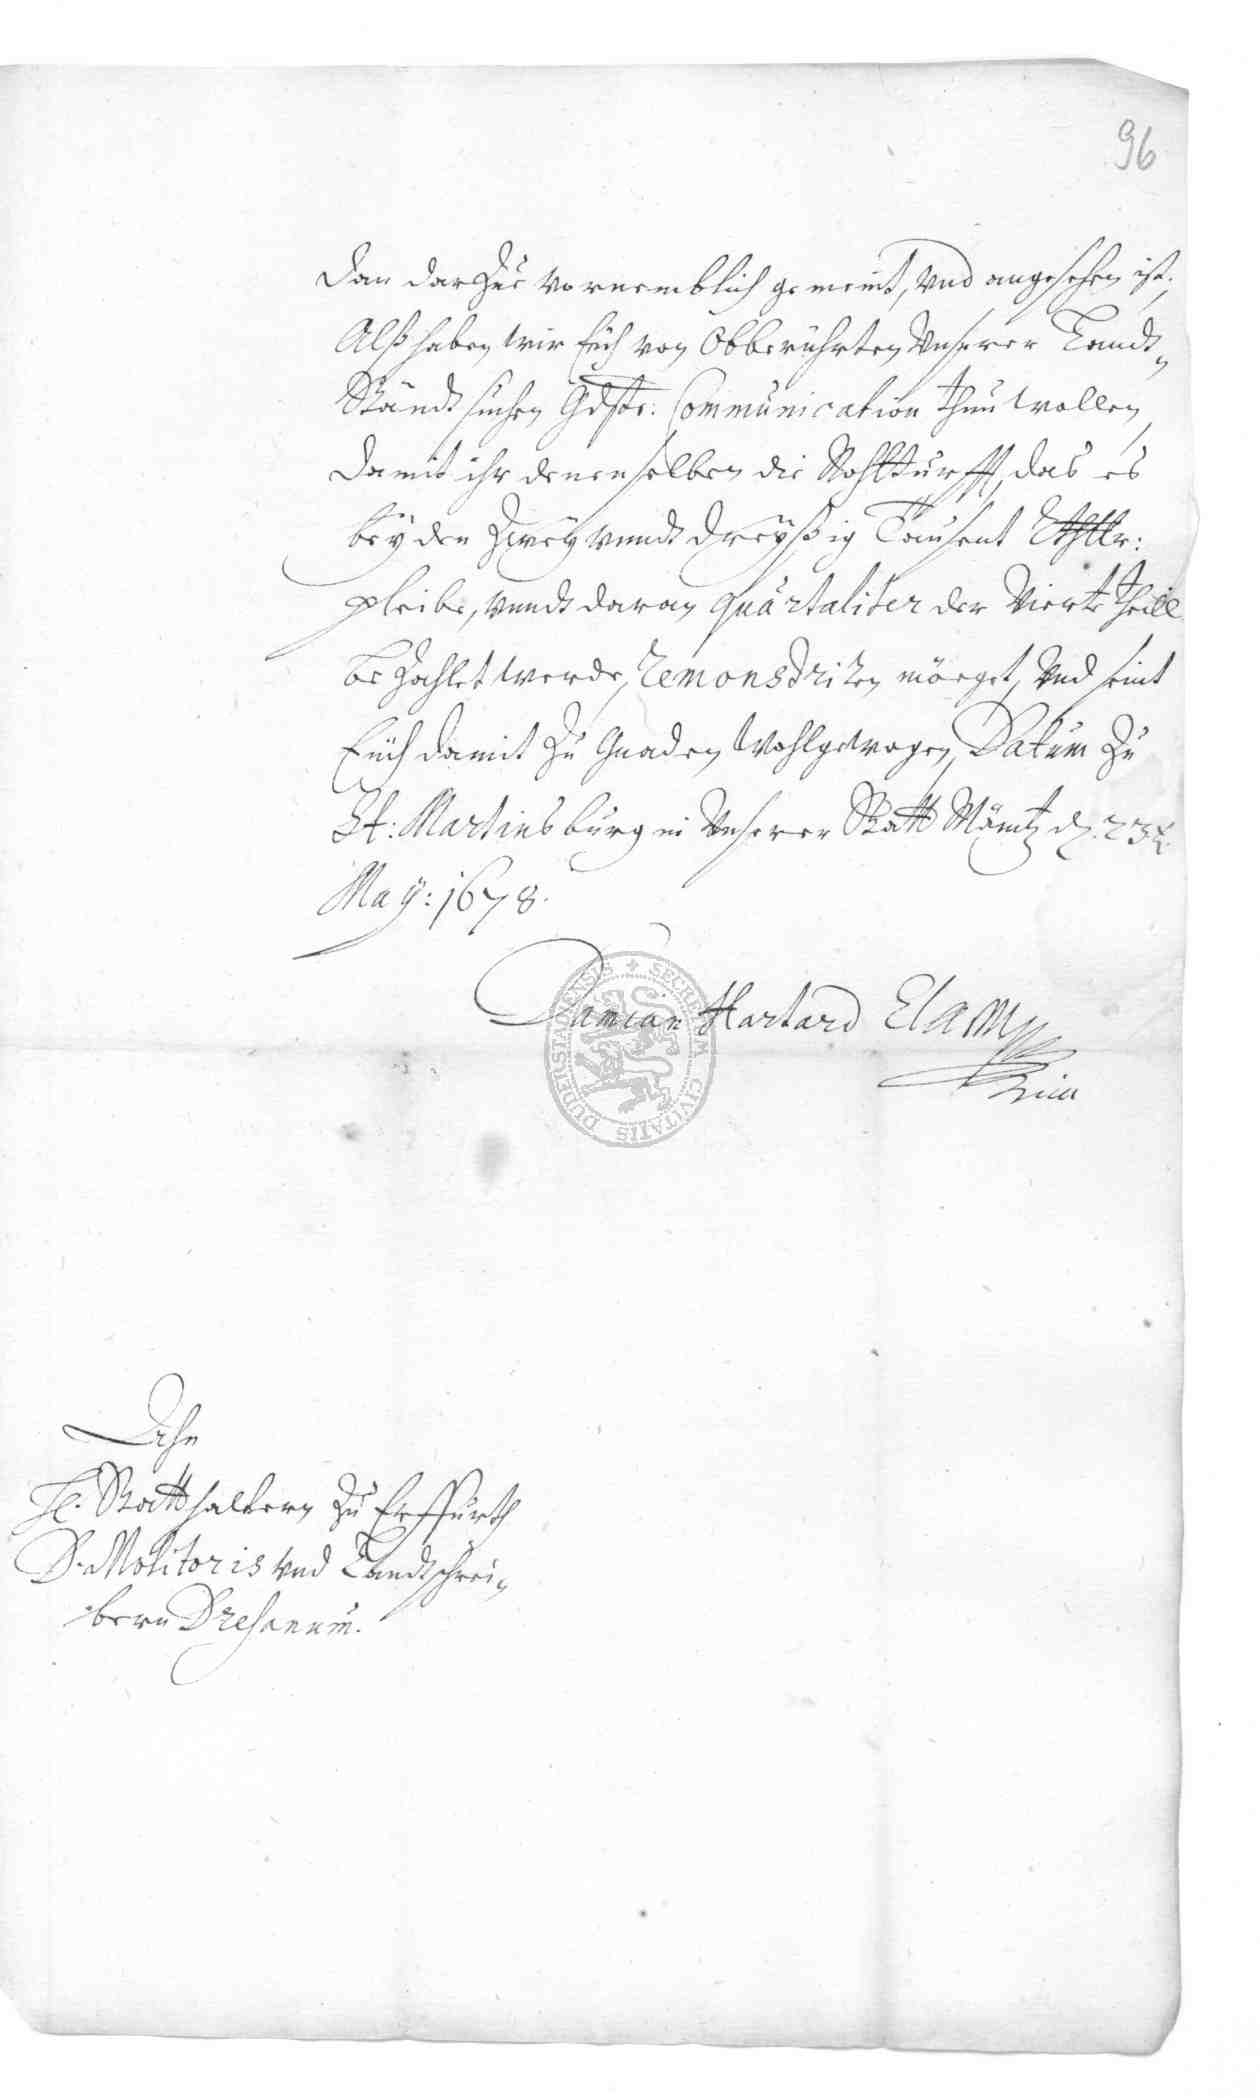 96
dan darzue vornemblich gemeint, vnd angesehen ist,
Alß haben wir Euch von Obberührten Vnserer Landt-
Ständt suchen Gdste: Communication thun wollen,
damit ihr denenselben die Nohtturfft, das es
bey den Zwey vundt dreyßig Tausent Rthlr:
pleibe, vundt daran quartaliter der Vierte theill
bezahlet werde, remonstriren möeget, Vnd seint
Euch damit zu Gnaden Wohlgewogen, Datum zu
St: Martinsburg in Vnserer Statt Mäintz d. 23t.
May: 1678.
Damian Hartard Elam
SECRETUM CIVITATIS DUDERSTADENSIS
Ahn
H. Statthaltern zu Erffurth
D. Molitoris vnd Landtschrei-
bern Dresanum.